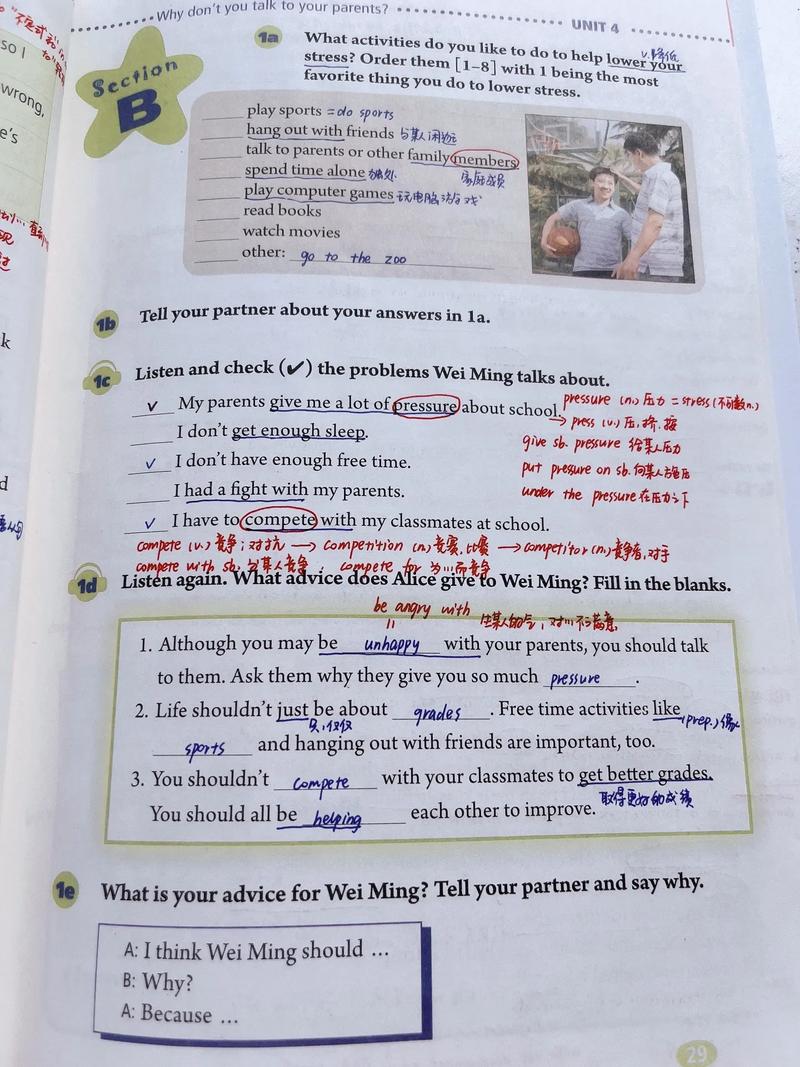 Why don't you talk to your parents?
UNIT 4
so I
wrong,
e's
k
d
Section
B
1a What activities do you like to do to help lower your
v.降低
stress? Order them [1–8] with 1 being the most
favorite thing you do to lower stress.
play sports = do sports
hang out with friends 与某人闲逛
talk to parents or other family members
家庭成员
spend time alone 独处
play computer games 玩电脑游戏
read books
watch movies
other: go to the zoo
1b Tell your partner about your answers in 1a.
1c Listen and check (✔) the problems Wei Ming talks about.
✓ My parents give me a lot of pressure about school.
pressure (n.) 压力 = stress (不可数n.)
→ press (v.) 压,挤,按
I don't get enough sleep.
give sb. pressure 给某人压力
✓ I don't have enough free time.
put pressure on sb. 向某人施压
I had a fight with my parents.
under the pressure 在压力之下
✓ I have to compete with my classmates at school.
compete (v.) 竞争;对抗 → competition (n.) 竞赛,比赛 → competitor (n.) 竞争者,对手
compete with sb. 与某人竞争 compete for 为...而竞争
1d Listen again. What advice does Alice give to Wei Ming? Fill in the blanks.
be angry with 生某人的气,对...不满意
=
1. Although you may be unhappy with your parents, you should talk
to them. Ask them why they give you so much pressure.
2. Life shouldn't just be about grades. Free time activities like
只,仅仅
(prep.) 像
sports and hanging out with friends are important, too.
3. You shouldn't compete with your classmates to get better grades.
取得更好的成绩
You should all be helping each other to improve.
1e What is your advice for Wei Ming? Tell your partner and say why.
A: I think Wei Ming should …
B: Why?
A: Because …
29